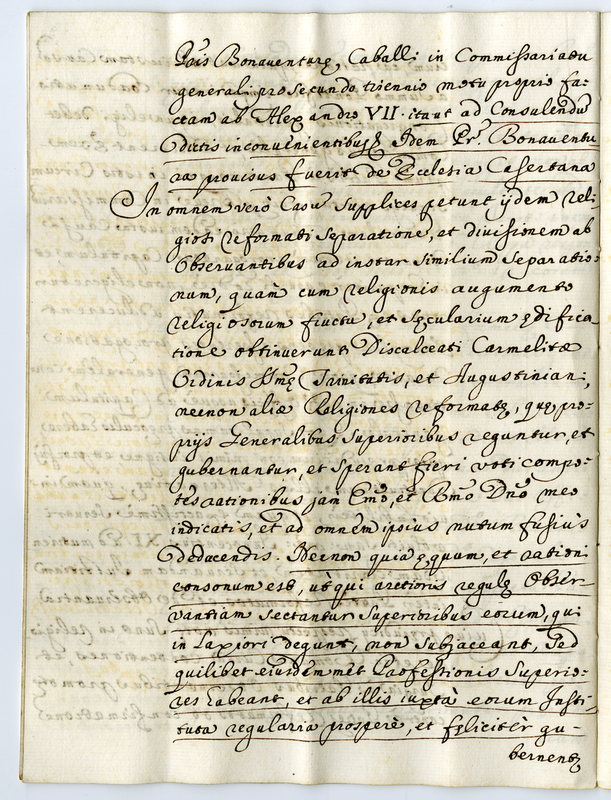 Pris Bonaventuræ, Caballi in Commissariatu
generali pro secundo triennio motu proprio fa-
ctam ab Alexandro VII. itaut ad Consulendū
dictis inconvenientibus Idem Pr. Bonaventu
ra provisus fuerit de Ecclesia Casertana
In omnem verò Casū supplices petunt ijdem reli-
giosi reformati separationē, et divisionem ab
Observantibus ad instar similium separatio-
num, quam cum religionis augumento
religiosorum fructu, et sęcularium ędifica
tione obtinuerunt Discalceati Carmelitæ
Ordinis Ssmę Trinitatis, et Augustiniani,
necnon aliæ Religiones reformatę, quę pro-
prijs Generalibus superioribus reguntur, et
gubernantur, et sperant fieri voti compo-
tes rationibus jam Emō, et Rmo Dnō meo
indicatis, et ad omnem ipsius nutum fusiùs
deducendis. Necnon quia ęquum, et rationi
consonum est, ut qui arctioris regulę obser-
vantiam sectantur superioribus eorum, qui
in laxiori degunt, non subjaceant, sed
quilibet eiusdem met Professionis superio-
res habeant, et ab illis iuxtà eorum Insti-
tuta regularia prosperè, et fęlicitèr gu-
bernentę